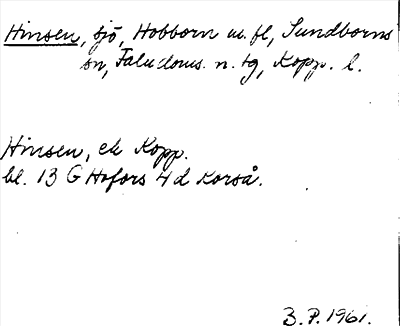 Hinsen, sjö, Hobborn m. fl, Sundborns
sn, Faludoms. n. tg, Kopp. l.
Hinsen, ek Kopp.
bl. 13 G Hofors 4 d Korså.
B. P. 1961.